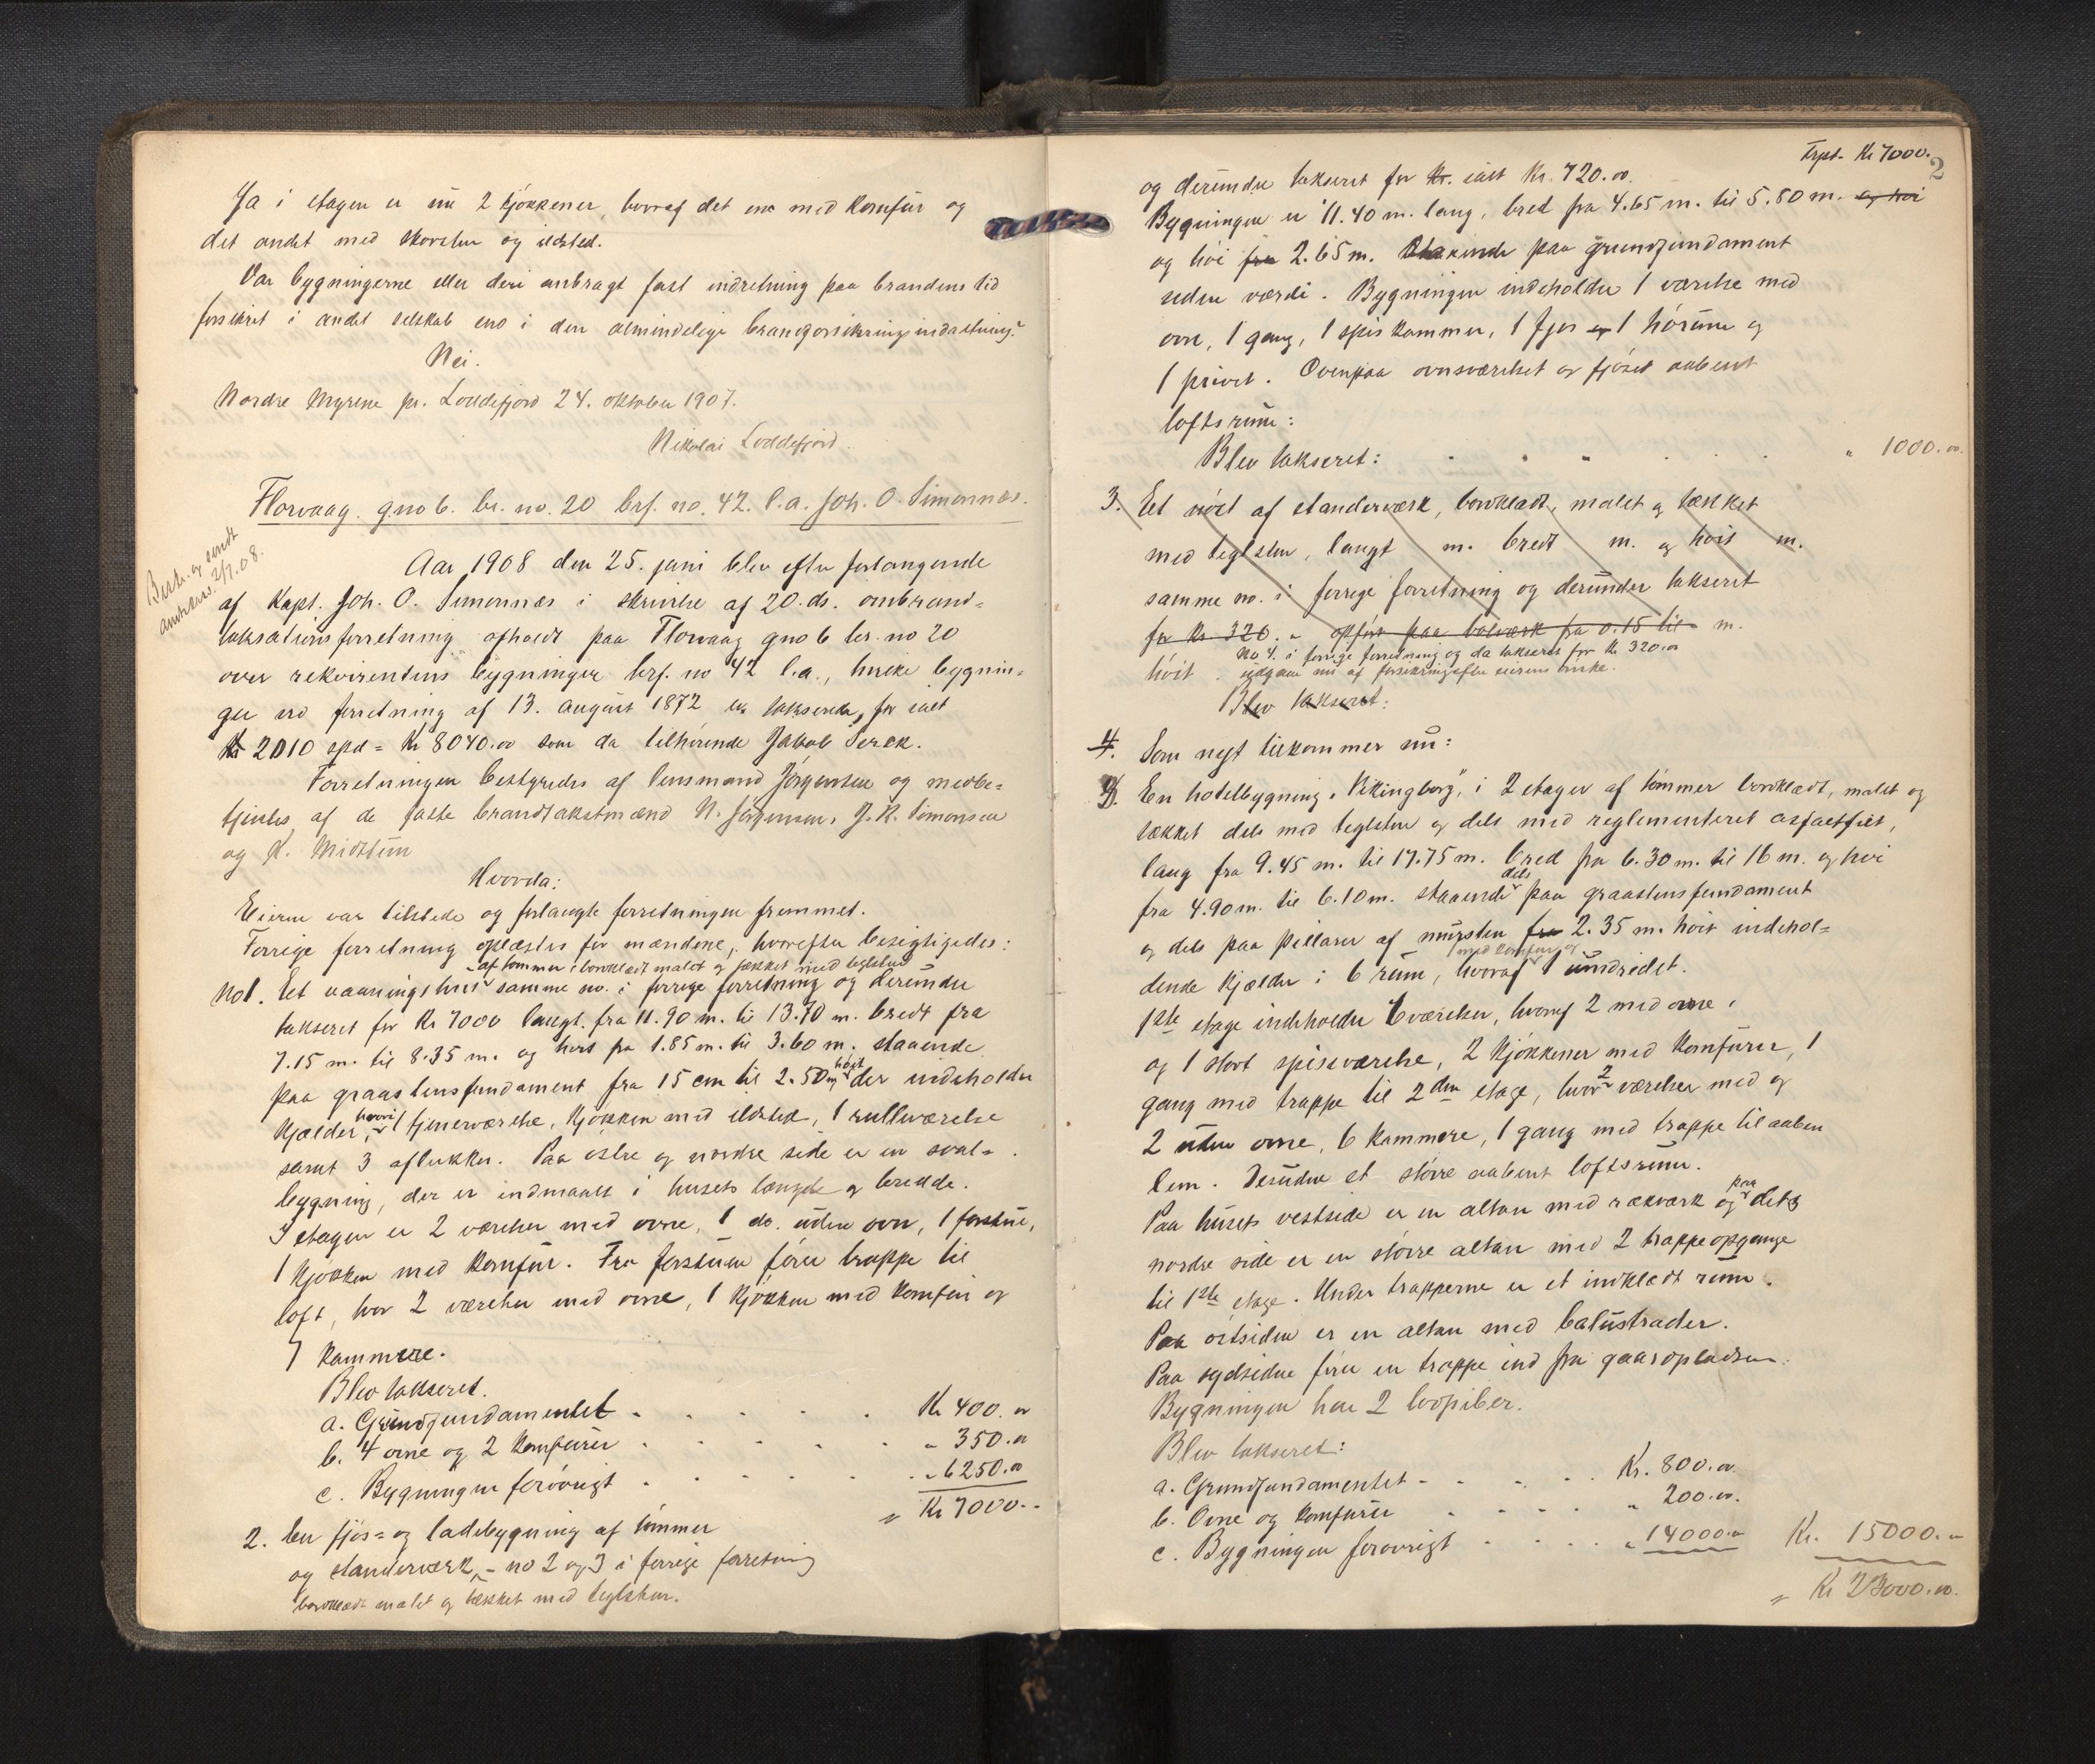 Ja i etagen er nu 2 kjøkkener, hvoraf det ene med komfur og
det andet med skorsten og ildsted.
Var bygningerne eller deri anbragt fast indretning paa brandens tid
forsikret i andet selskab end i den almindelige brandforsikringsindretning?
Nei.
Nordre Myrene pr. Loddefjord 24. oktober 1907.
Nikolai Loddefjord.
Florvaag. gno 6. br. no. 20 brf. no. 42. l.a. Joh. O. Simonnæs.
Beskr. og sendt
amtskas. 2/7.08.
Aar 1908 den 25. juni blev efter forlangende
af Kapt. Joh. O. Simonnæs i skrivelse af 20. ds. ombrand=
taksationsforretning afholdt paa Florvaag gno 6 br. no 20
over rekvirentens bygninger brf. no 42 l.a., hvilke bygnin=
ger ved forretning af 13. august 1872 er takserede, for ialt
2010 spd = Kr 8040.00 som da tilhørende Jakob Serck.
Forretningen bestyredes af lensmand Jørgensen og medbe=
tjentes af de faste brandtakstmænd N. Jørgensen, J. R. Simonsen
og K. Midttun
Hvorda:
Eieren var tilstede og forlangte forretningen fremmet.
Forrige forretning oplæstes for mændene, hvorefter besigtigedes:
af tømmer, bordklædt malet og tækket med teglsten
No 1. Et vaaningshus samme no. i forrige forretning og derunder
takseret for Kr 7000 langt. fra 11.90 m. til 13.70 m. bredt fra
7.15 m. til 8.35 m. og høit fra 1.85 m. til 3.60 m. staaende
paa graastensfundament fra 15 cm til 2.50 m høit der indeholder
kjælder, hvori 1 tjenerværelse, kjøkken med ildsted, 1 rulleværelse
samt 3 aflukker. Paa østre og nordre side er en sval=
bygning, der er indmaalt i husets længde og bredde.
I etagen er 2 værelser med ovne, 1 do. uden ovn, 1 forstue,
1 kjøkken med komfur. Fra forstuen fører trappe til
loft, hvor 2 værelser med ovne, 1 kjøkken med komfur og
7 kammere.
Blev takseret.
a. Grundfundamentet . . . . . Kr 400.00
b. 4 ovne og 2 komfurer . . . . . " 350.00
c. Bygningen forøvrigt . . . . . " 6250.00
= Kr 7000.-
2. En fjøs= og ladebygning af tømmer
og standerværk, - no 2 og 3 i forrige forretning
bordklædt malet og tækket med teglsten.
Trpt. Kr 7000.
2
og derunder takseret for Kr. ialt Kr. 720.00.
Bygningen er 11.40 m. lang, bred fra 4.65 m. til 5.80 m. og høi
og høi fra 2.65 m. Staaende paa grundfundament
uden værdi. Bygningen indeholder 1 værelse med
ovn, 1 gang, 1 spiskammer, 1 fjøs og 1 hørum og
1 privet. Ovenpaa ovnsværelset og fjøset aabent
loftsrum:
Blev takseret: . . . . . . " 1000.00.
3. Et nøst af standerværk, bordklædt, malet og tækket
med teglsten, langt m. bredt m. og høit m.
samme no. i forrige forretning og derunder takseret
for Kr 320. - opført paa bolværk fra 0.15 til m.
No 4. i forrige forretning og da takseret for Kr 320.00
høit. udgaar nu af forsikring efter eierens ønske.
Blev takseret:
4. Som nyt tilkommer nu:
3. En hotelbygning "Vikingborg", i 2 etager af tømmer bordklædt, malet og
tækket dels med teglsten og dels med reglementeret asfaltfilt,
lang fra 9.45 m. til 17.75 m. bred fra 6.30 m. til 16 m. og høi
fra 4.90 m. til 6.10 m. staaende dels paa graastensfundament
og dels paa pillarer af mursten fra 2.35 m. høit indehol=
dende kjælder i 6 rum, hvoraf 1 med komfur og 1 uindredet.
1ste etage indeholder 6 værelser, hvoraf 2 med ovne,
og 1 stort spiseværelse, 2 kjøkkener med komfurer, 1
gang med trappe til 2den etage, hvor 2 værelser med og
2 uden ovne, 6 kammere, 1 gang med trappe til aaben
lem. Desuden et større aabent loftsrum.
Paa husets vestside er en altan med rækværk og paa dets
nordre side er en større altan med 2 trappeopgange
til 1ste etage. Under trapperne er et indklædt rum.
Paa østsiden er en altan med balustrader.
Paa sydsiden fører en trappe ind fra gaardspladsen.
Bygningen har 2 lodpiber.
Blev takseret:
a. Grundfundamentet - - . . . Kr. 800.00.
b. Ovne og komfurer . . . . " 200.00.
c. Bygningen forøvrigt . . . . " 14000.00 Kr. 15000.-
= Kr 23000.00.